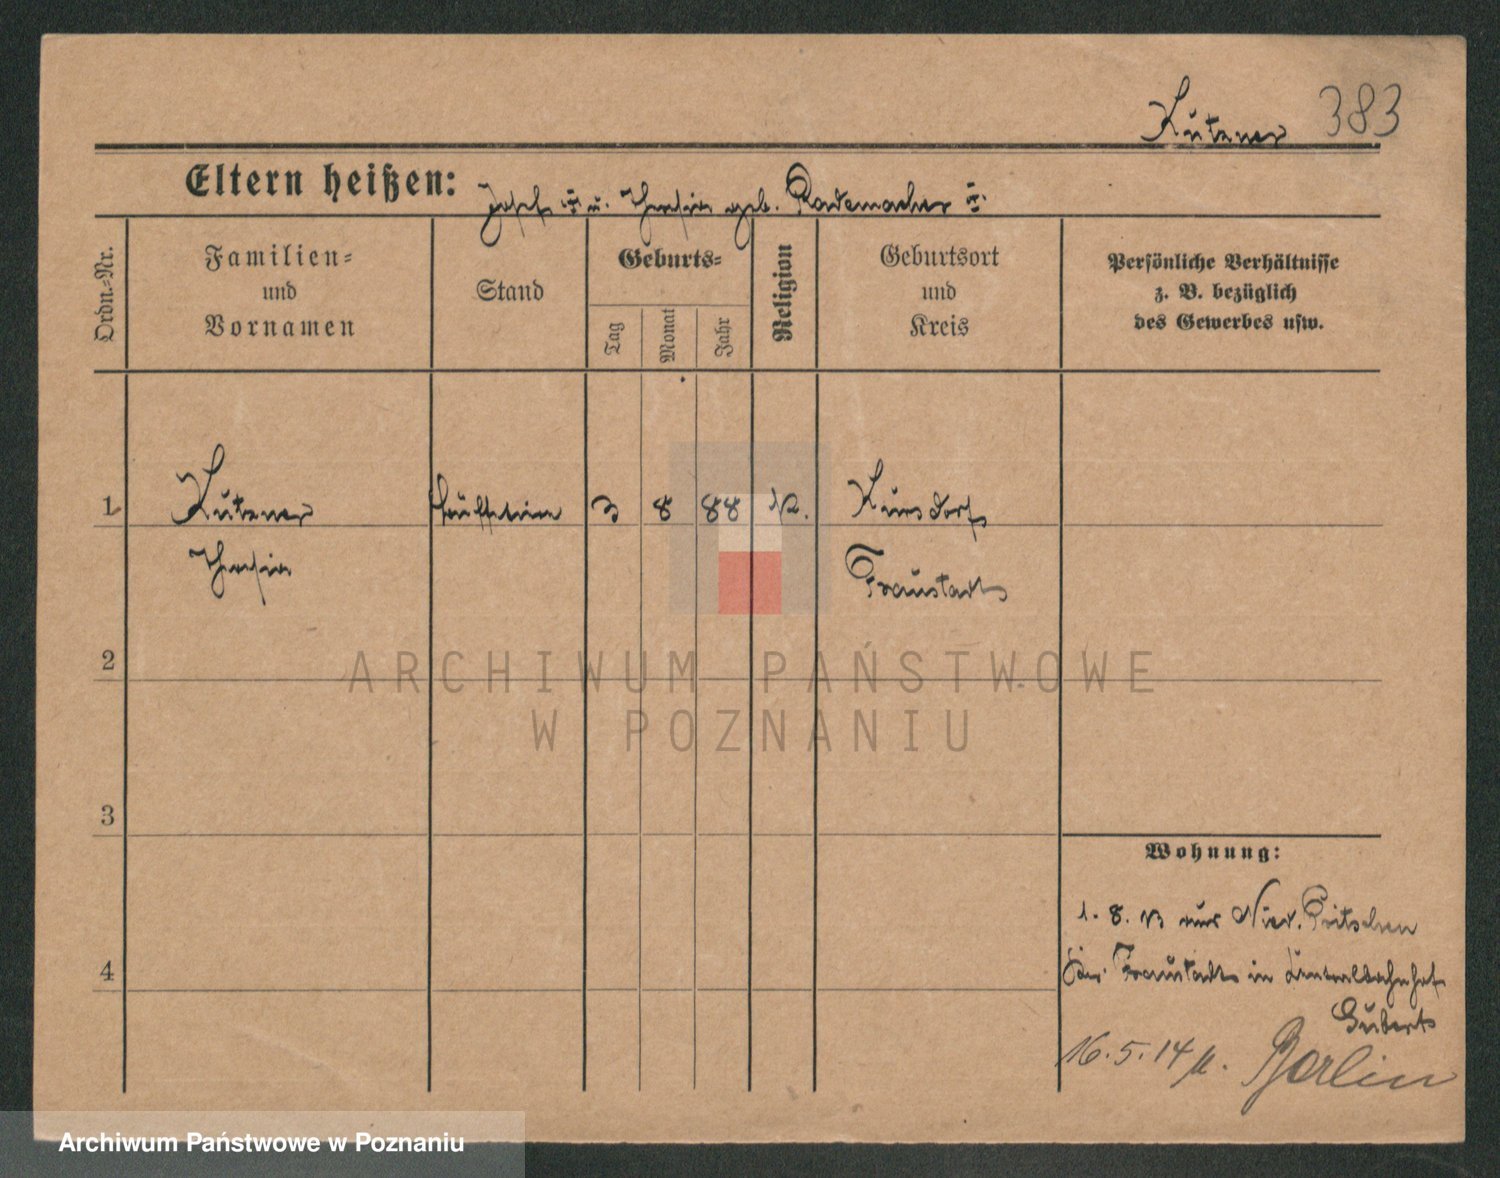 Kutzner 383
Eltern heißen: Josef u. Theresia geb. Rademacher
Ordn.-Nr.
Familien-
und
Vornamen
Stand
Geburts-
Tag
Monat
Jahr
Religion
Geburtsort
und
Kreis
Persönliche Verhältnisse
z. B. bezüglich
des Gewerbes usw.
1 Kutzner 3 8 88 K. Kursdorf
Theresia Fraustadt
2
ARCHIWUM PAŃSTWOWE
W POZNANIU
3
Wohnung:
1. 8. 13 aus Nied. Pritschen
4
Fraustadt in Zentralbahnhof
16. 5. 14 n. Berlin
Archiwum Państwowe w Poznaniu